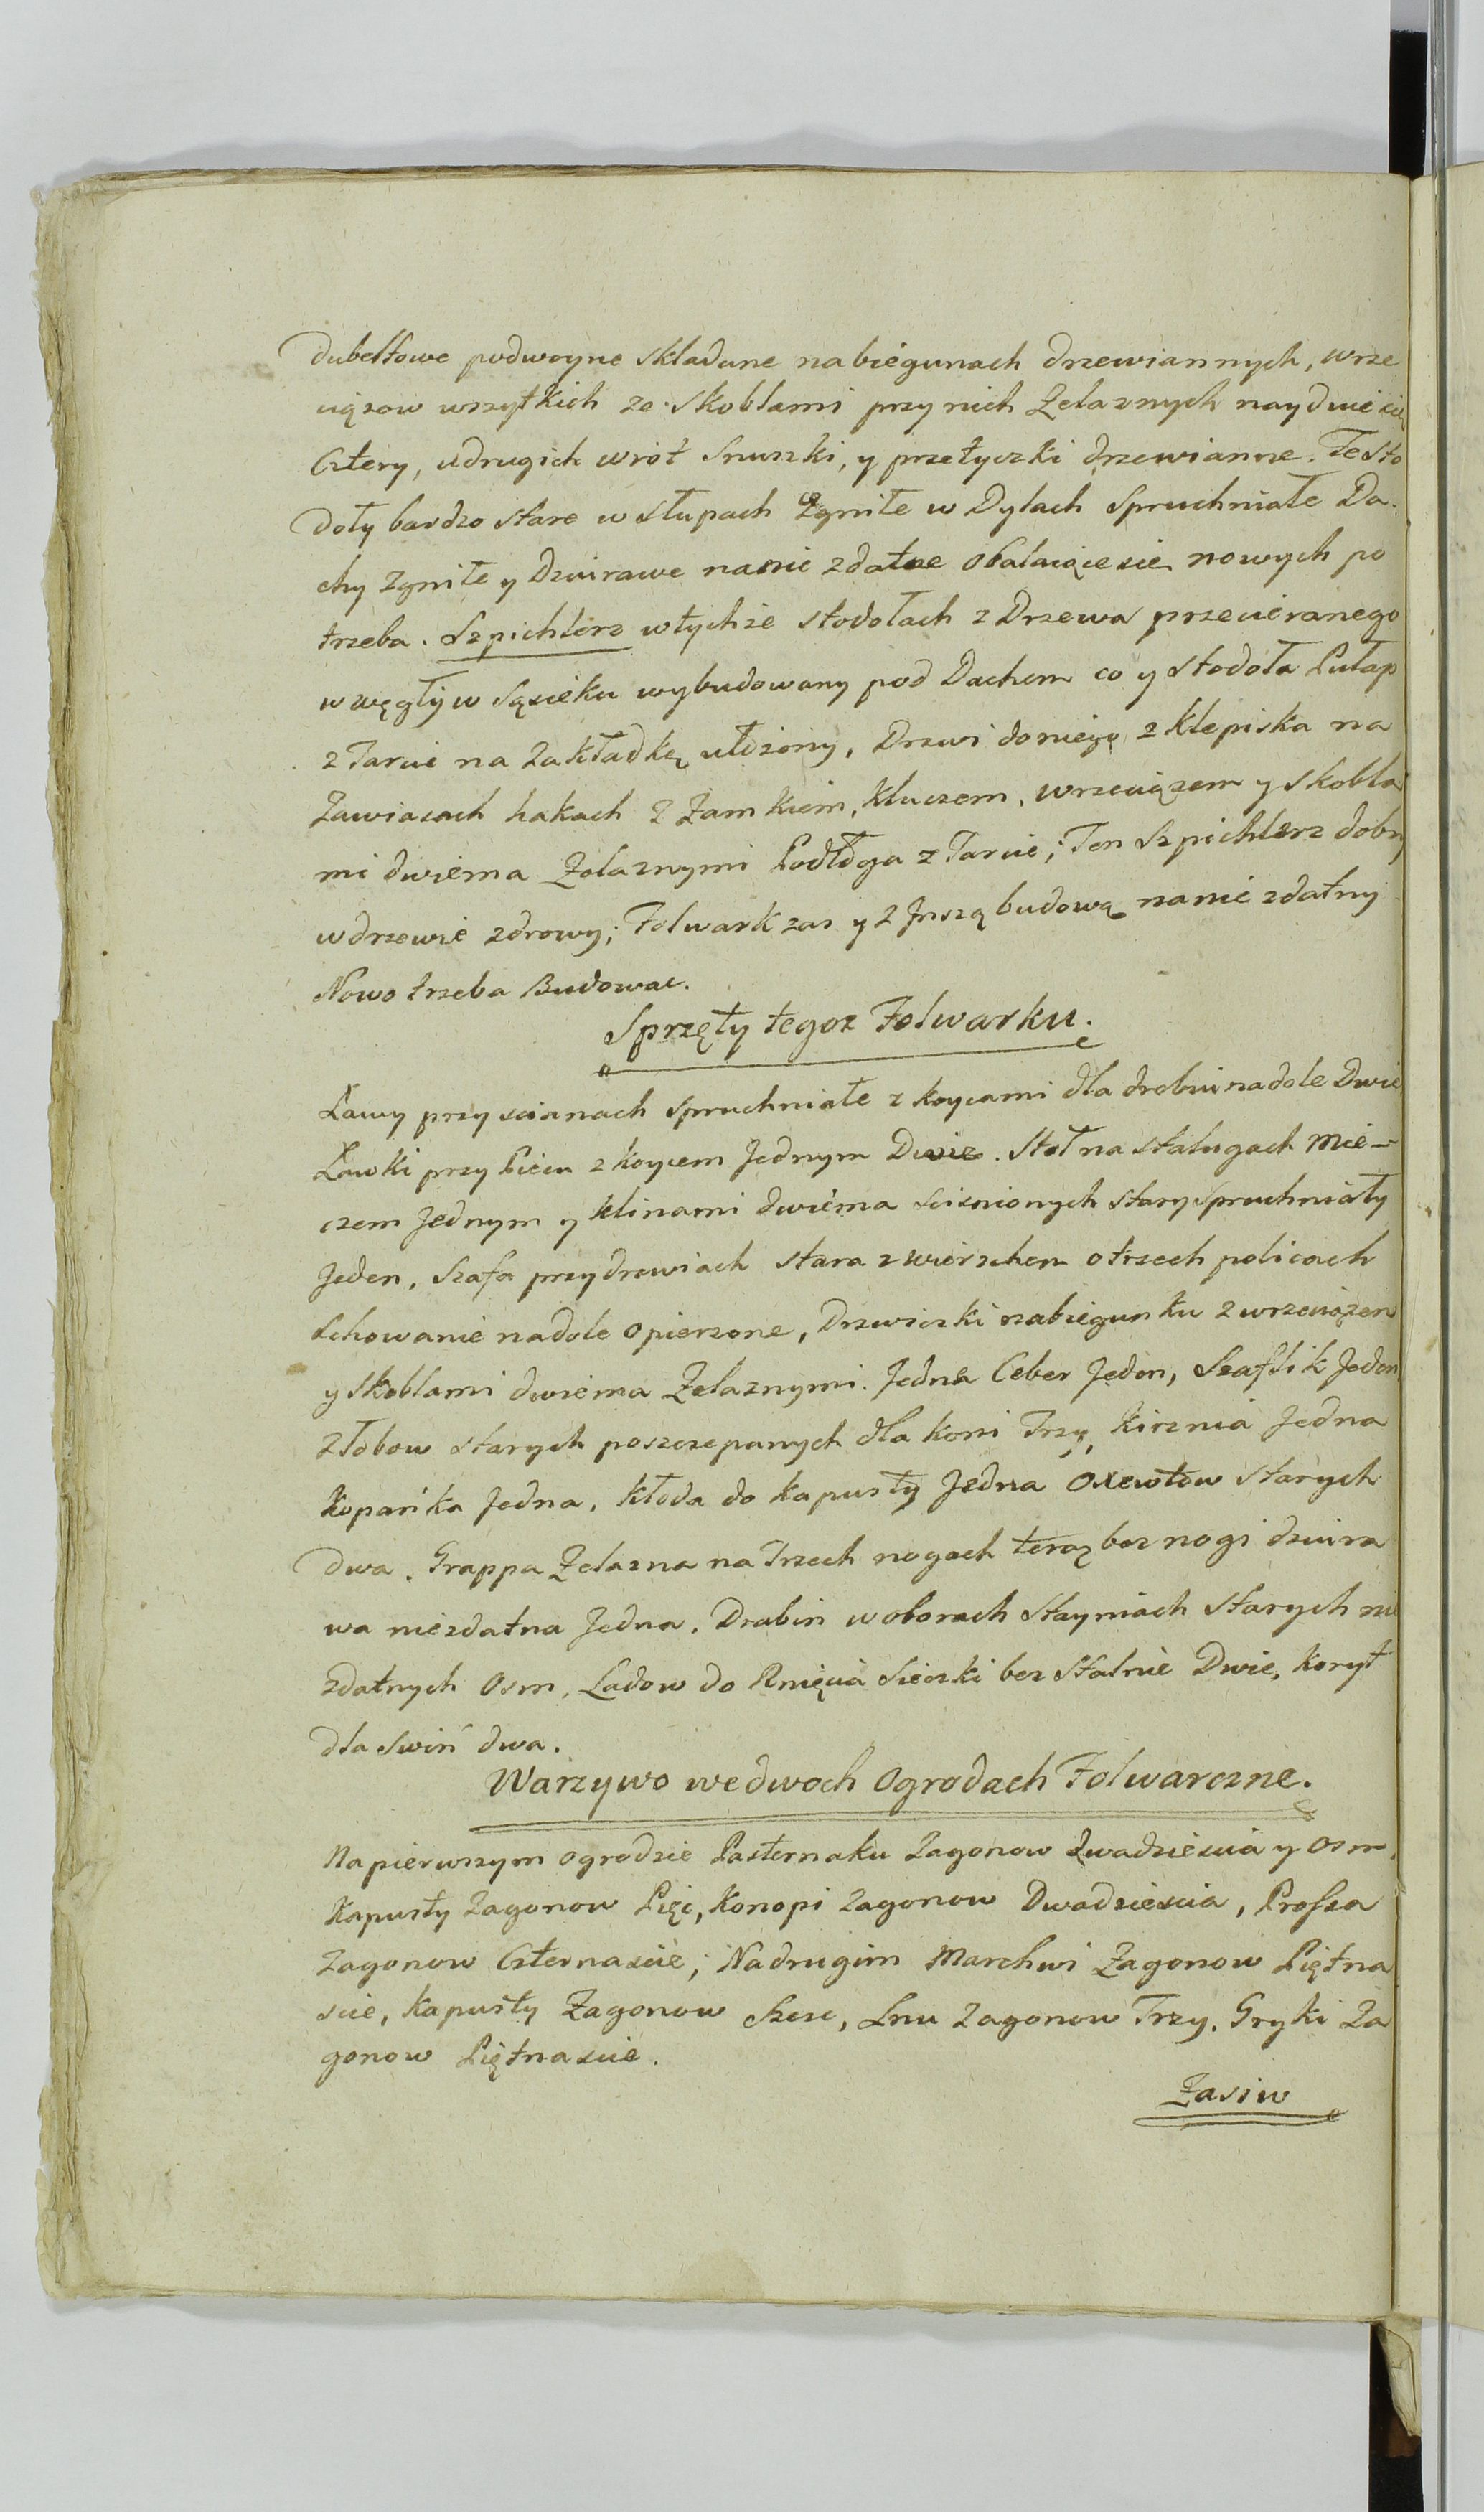 dubeltowe podwoyne składane na biegunach drzewiannych, wrze
ciązow wszytkich ze skoblami przy nich Zelaznych naydwie się
Cztery, u drugich wrot Snuszki, y przetyczki drzewianne. Te Sto
doły bardzo stare w Słupach Zgniłe w Dylach Spruchniałe Da
chy zgniłe y Dziurawe na nic zdatne obalaiące sie nowych po
trzeba. Szpichlerz w tychże stodołach z Drzewa przecieranego
w węgły w Sąsieku wybudowany pod Dachem co y stodoła Pułap
z Tarcic na Zakładkę ułożony, Drzwi do niego z klepiska na
Zawiasach hakach z Zamkiem, kluczem, wrzeciązem y skobla
mi dwiema Zelaznymi Podłoga z Tarcic; Ten Szpichlerz dobry
w drzewie zdrowy; Folwark zas y z Jnszą budową na nic zdatny
Nowo trzeba Budowac.
Sprzęty tegoz Folwarku.
Ławy przy scianach spruchniałe z koycami dla drobiu na dole Dwie
Ławki przy Piecu z koycem Jednym Dwie. Stoł na stalugach Mie-
czem Jednym y klinami dwiema scisnionych stary Spruchniały
Jeden, Szafa przy drzwiach stara z wierzchem o trzech policach
Schowanie na dole opierzone, Drzwiczki na biegunku z wrzeciązem
y skoblami dwiema Zelaznymi. Jedna Ceber Jeden, Szaflik Jeden
Złobow starych poszczepanych dla koni Trzy, kiernia Jedna
kopańka Jedna, kłoda do kapusty Jedna Oxewtow starych
dwa. Grappa Zelazna na Trzech nogach teraz bez nogi dziura
wa niezdatna Jedna. Drabin w oborach stayniach starych nie
zdatnych Osm, Ladow do Rznięcia sieczki bez stalnic Dwie, koryt
dla Swiń dwa.
Warzywo we dwoch Ogrodach Folwarczne.
Na pierwszym ogrodzie Pasternaku Zagonow dwadziescia y Osm.
Kapusty Zagonow Pięc, Konopi Zagonow Dwadziescia, Prossa
Zagonow Czternascie; Na drugim Marchwi Zagonow Piętna
scie, Kapusty Zagonow Szesc, Lnu Zagonow Trzy. Gryki Za
gonow Piętnascie.
Zasiw